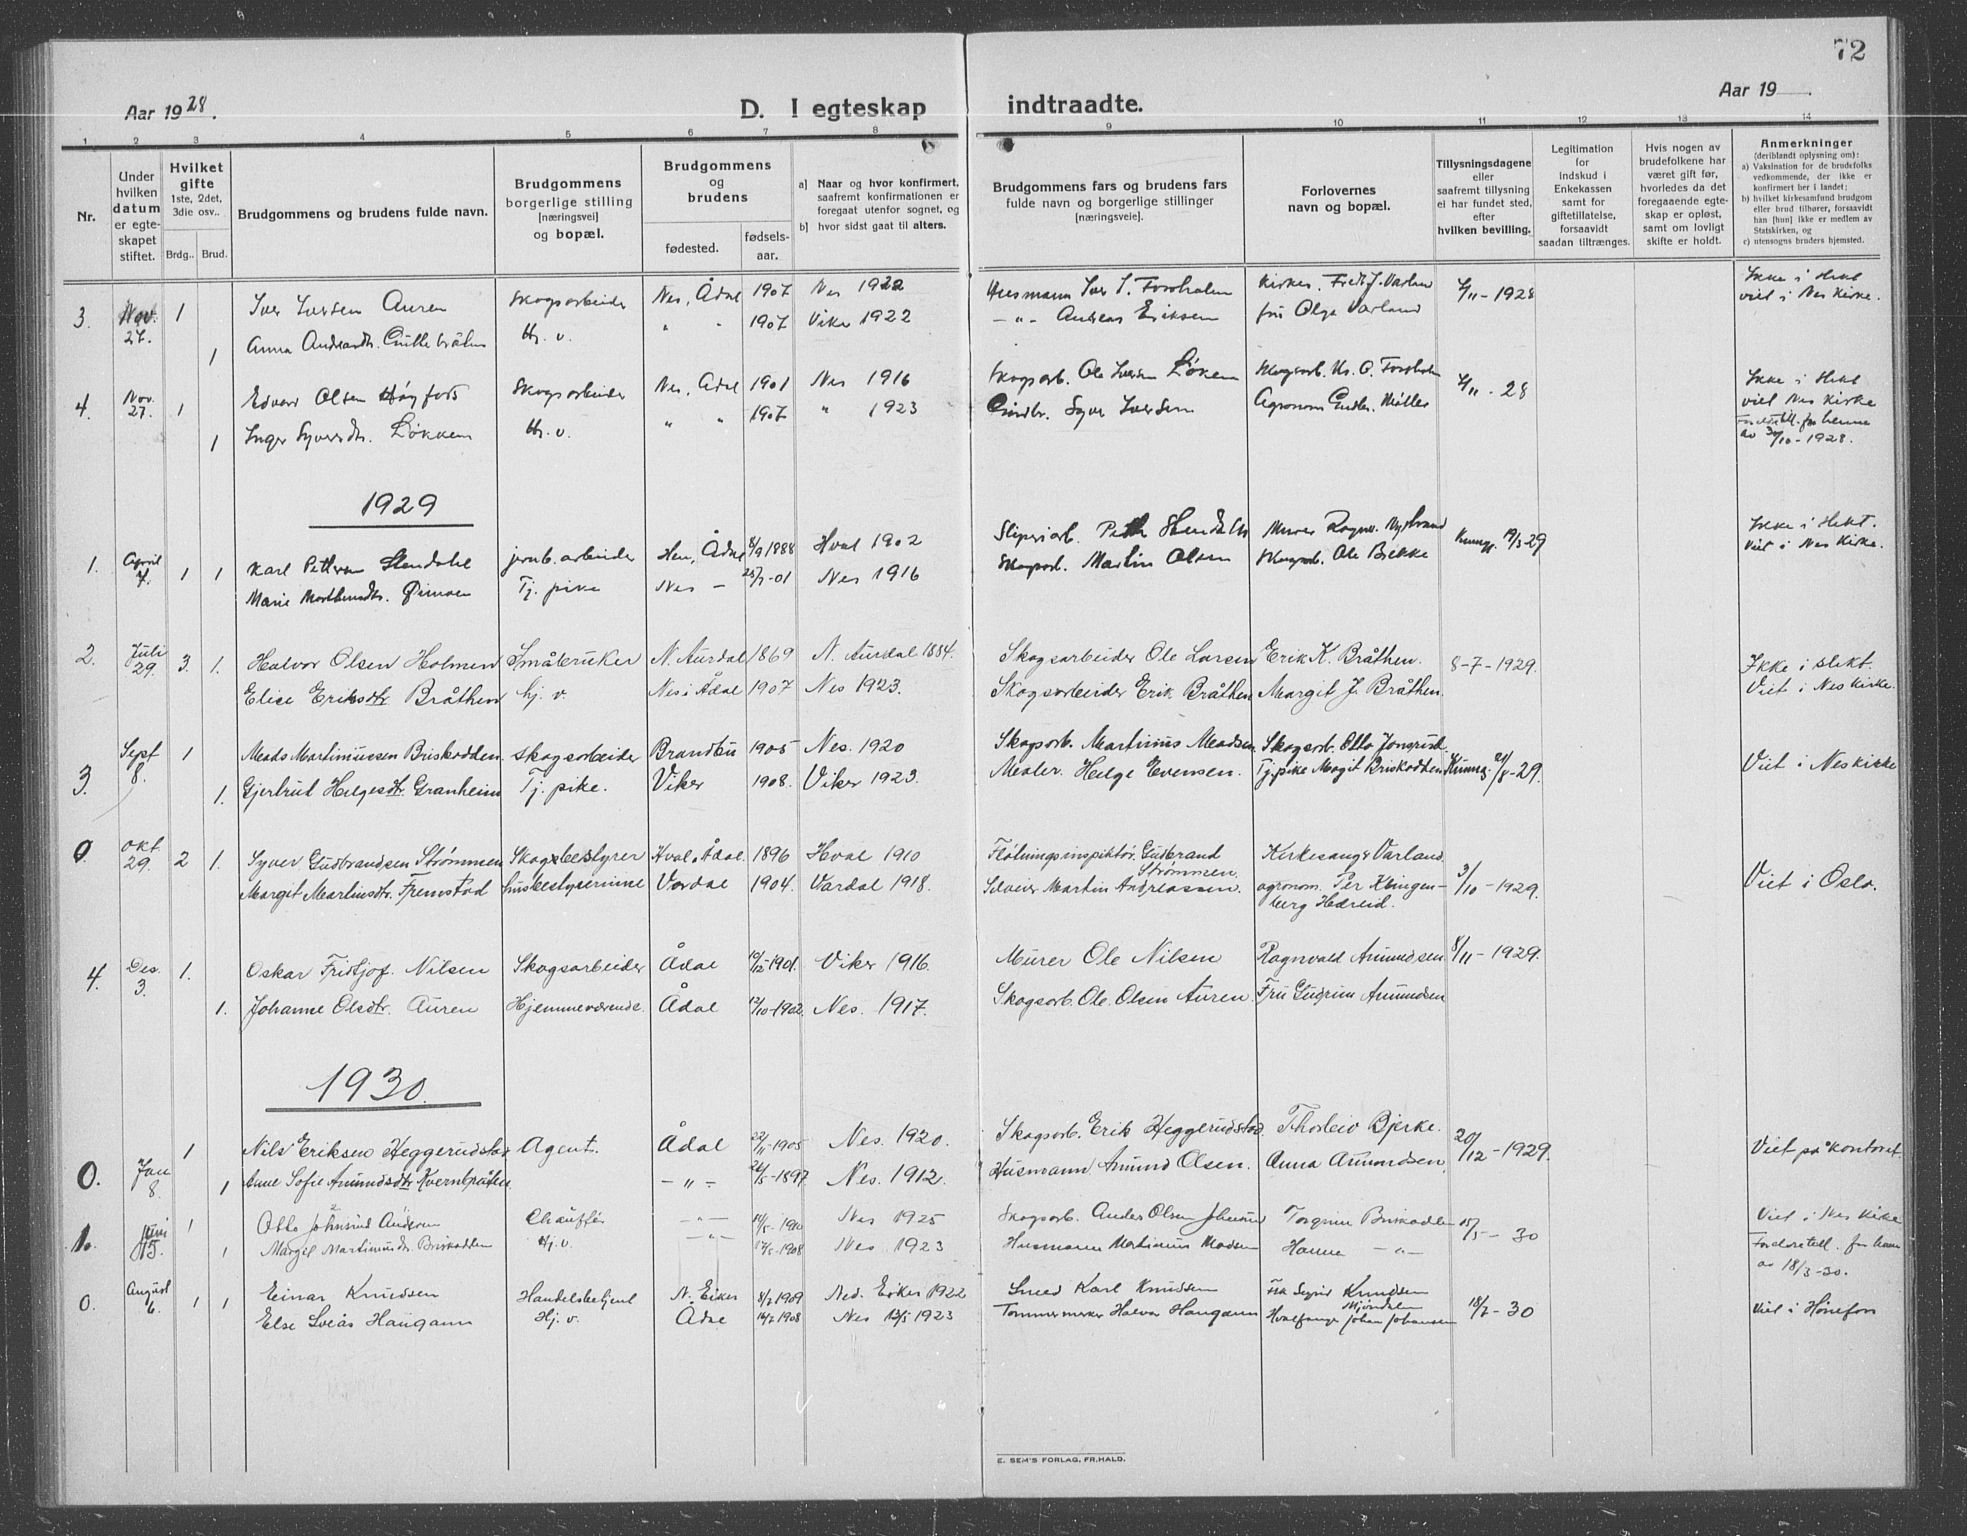 72
Aar 1928.
D. I egteskap indtraadte.
Aar 19 .
1 2 3 4 5 6 7 8 9 10 11 12 13 14
Nr.
Under hvilken datum er egteskapet stiftet.
Hvilket gifte 1ste, 2det, 3die osv..
Brdg.. Brud.
Brudgommens og brudens fulde navn.
Brudgommens borgerlige stilling [næringsvei] og bopæl.
Brudgommens og brudens
fødested. fødselsaar.
a] Naar og hvor konfirmert, saafremt konfirmationen er foregaat utenfor sognet, og
b] hvor sidst gaat til alters.
Brudgommens fars og brudens fars fulde navn og borgerlige stillinger [næringsveie].
Forlovernes navn og bopæl.
Tillysningsdagene eller saafremt tillysning ei har fundet sted, efter hvilken bevilling.
Legitimation for indskud i Enkekassen samt for giftetillatelse, forsaavidt saadan tiltrænges.
Hvis nogen av brudefolkene har været gift før, hvorledes da det foregaaende egteskap er opløst, samt om lovligt skifte er holdt.
Anmerkninger
(deriblandt oplysning om):
a) Vaksination for de brudefolks vedkommende, der ikke er konfirmert her i landet;
b) hvilket kirkesamfund brudgom eller brud tilhører, forsaavidt han [hun] ikke er medlem av Statskirken, og
c) utensogns bruders hjemsted.
3. Nov. 27. 1 Iver Iversen Auren Skogsarbeider Nes, Ådal 1907 Nes 1922 Husmann Iver I. Kirkes. Varland 1928 Ikke i slekt viet i Nes Kirke.
1 Anna Hj. v. " " 1907 Viker 1922 — " — Andreas Eriksen fru Olga Varland
4. Nov. 27. 1 Edvard Olsen Høgfoss Skogsarbeider Nes, Ådal 1901 Nes 1916 Skogsarb. Ole Iversen Løken 28 Ikke i slekt viet Nes Kirke
1 Inger Syversdtr. Løkken Hj. v. " " 1907 " 1923 Syver Iversen Agronom Gudbr. Møller 30/10-1928.
1929
1. April 7. 1 1 Karl Pettersen jernb.arbeider Hen, Ådal 8/9 1888 Hval 1902 Sliperiarb. Ragnv. 29 Ikke i slekt. Viet i Nes Kirke.
Marie Tj. pike Nes — 01 Nes 1916 Skogsarb. Martin Olsen Skogsarb. Ole Bekke
2. Juli 29. 3. 1. Halvor Olsen Holmen Småbruker N. Aurdal 1869 N. Aurdal 1884. Skogsarbeider Ole Larsen Erik K. Bråthen. 8-7-1929. Ikke i slekt. Viet i Nes Kirke.
Elise Eriksdtr Bråthen hj. v. Nes i Ådal 1907 Nes 1923. Skogsarbeider Erik Bråthen Margit J. Bråthen.
3. Sept 8. 1 Mads Martinussen Briskodden. Skogsarbeider Brandbu 1905 Nes. 1920 Skogsarb. Martinus Madsen. Skogsarb. Otto 29. Viet i Nes kirke
1. Gjertrud Helgesdtr. Granheim Tj. pike. Viker 1908. Viker 1923. Maler. Helge Evensen. Tj. pike Magit Briskodden
0. okt 29. 2 1. Syver Gudbrandsen Strømmen Skogsbestyrer Hval, Ådal. 1896 Hval 1910 Fløtningsinspektør. Gudbrand Strømmen. Kirkesang. Varland 3/10-1929. Viet i Oslo.
Margit Martinsdtr. Fremstad husbestyrerinne Vardal 1904. Vardal 1918. Martin Andreassen. agronom. Per Klingenberg Hæreid.
4. Des. 3. 1. Oskar Fridtjof. Nilsen Skogsarbeider Ådal 1901. Viker 1916. Murer Ole Nilsen Ragnvald Amundsen 8/11-1929.
1. Johanne Olsdtr. Auren Hjemmeværende. Ådal 12/10-1902. Nes. 1917. Skogsarb. Ole. Olsen Auren. Fru Gudrun Amundsen
1930.
0. Jan 8. 1 Nils Eriksen Heggerudstad Agent. Ådal 22/11-1905 Nes. 1920. Skogsarb. Erik Heggerudstad. Thorleiv Bjerke. 20/12-1929. Viet på kontoret
1 Anne Sofie Amundsdtr Kvernbråten. — " — 1897 Nes. 1912. Husmann Amund Olsen. Anna Amundsen.
1. Juni 15. 1 Otto Chauffør — " — 1910 Nes 1925 Skogsarb. Anders Olsen Torgrim Briskodden 15/5-30 Viet i Nes Kirke
1 Margit Martinusdtr Briskodden Hj. v. — " — 1908 Nes 1923 Husmann Martinus Madsen Hanna — " — 18/3-30.
0. August 6. 1 1 Einar Knudsen Handelsbetjent N. Eiker 1909 Ned. Eiker 1922 Smed Karl Knudsen Frk Sigrid Knudsen Mjøndalen 18/7-30 Viet i Hønefoss
Else Haugann Hj. v. Ådal 1908 Nes 1923 Tømmermerker Halvor Haugann Hvalfanger Johan Johansen
E. SEM'S FORLAG, FR.HALD.